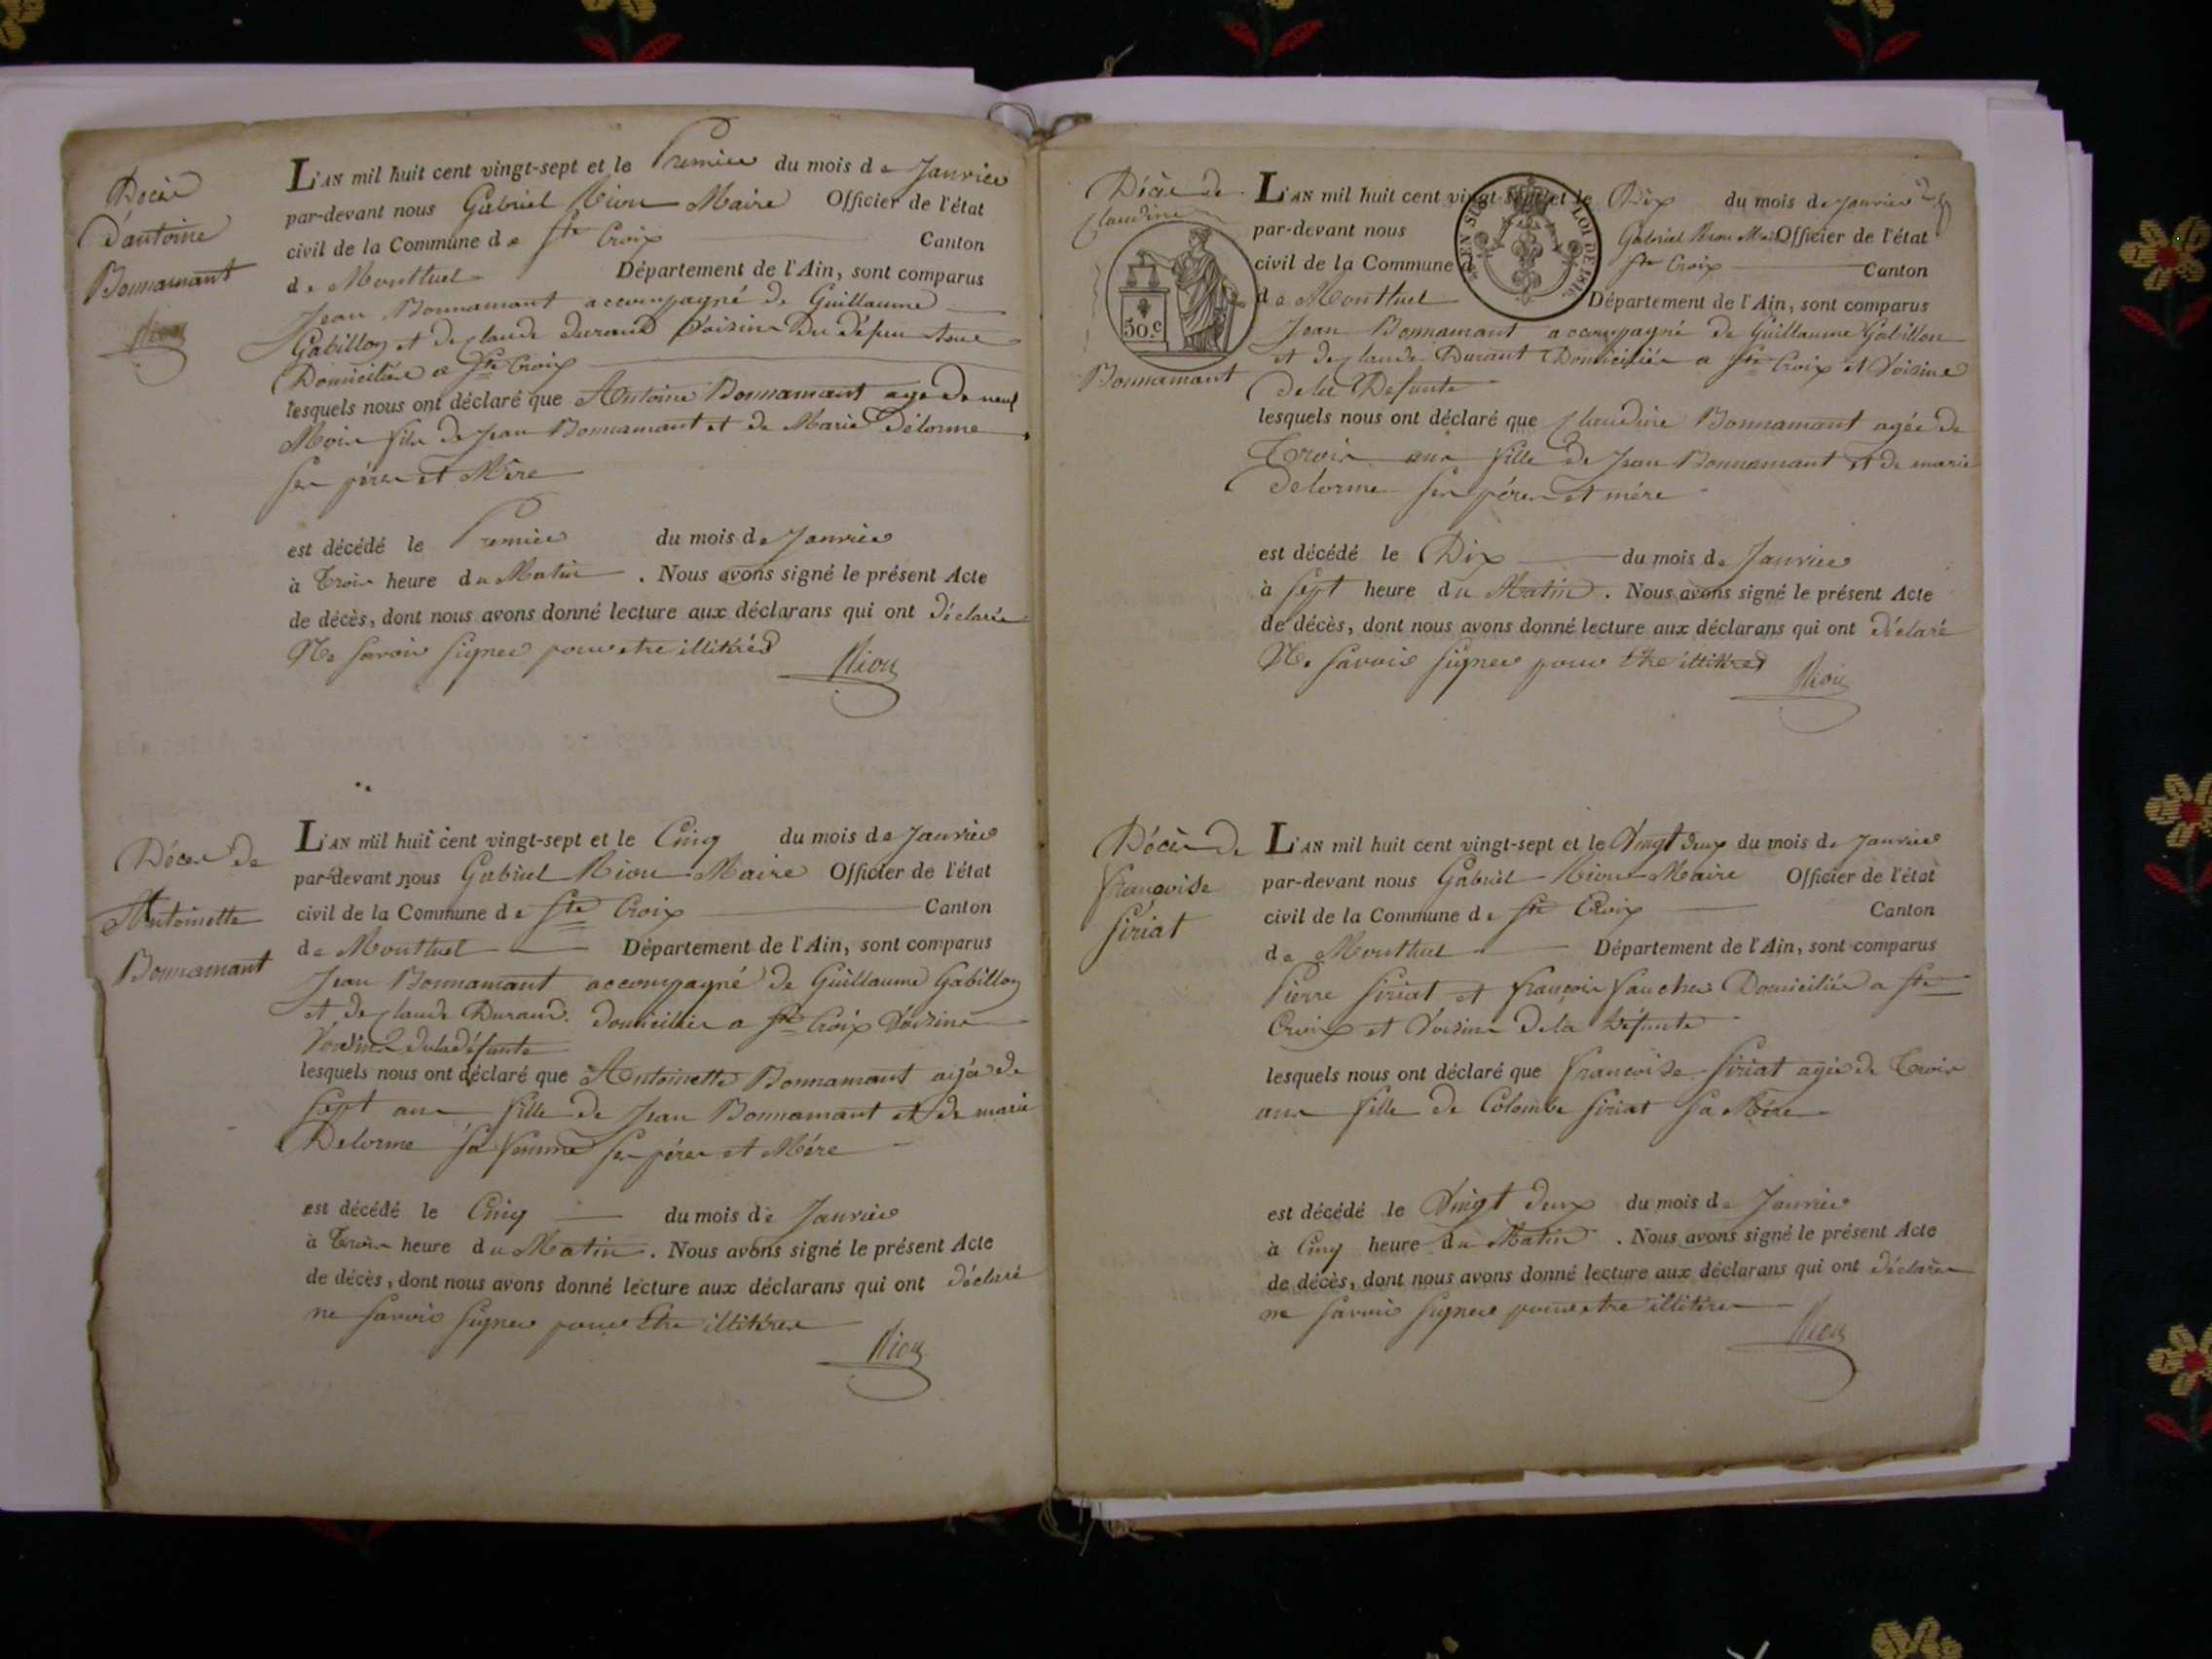 Décès
d'antoine
Bonnamant
Riou
L'AN mil huit cent vingt-sept et le Premier du mois de Janvier
par-devant nous Gabriel Riou Maire Officier de l'état
civil de la Commune de Ste Croix Canton
de Montluel Département de l'Ain, sont comparus
Jean Bonnamant accompagné de Guillaume
Gabillon et de Claude Durand Voisins du défun tous
Domiciliés a Ste Croix
lesquels nous ont déclaré que Antoine Bonnamant age de neuf
Mois fils de Jean Bonnamant et de Marie Délorme
Ses pères et Mère
est décédé le Premier du mois de Janvier
à Trois heure du Matin . Nous avons signé le présent Acte
de décès, dont nous avons donné lecture aux déclarans qui ont déclarés
Ne savoir signer pour etre illitérés
Riou
Décès de
Antoinette
Bonnamant
L'AN mil huit cent vingt-sept et le Cinq du mois de Janvier
par-devant nous Gabriel Riou Maire Officier de l'état
civil de la Commune de Ste Croix Canton
de Montluel Département de l'Ain, sont comparus
Jean Bonnamant accompagné de Guillaume Gabillon
et de Claude Durand. domiciliés a Ste Croix Voisins
Voisins de la défunte
lesquels nous ont déclaré que Antoinette Bonnamant agée de
Sept ans fille de Jean Bonnamant et de marie
Delorme sa femme ses pères et Mére
est décédé le Cinq du mois de Janvier
à Trois heure du Matin . Nous avons signé le présent Acte
de décès, dont nous avons donné lecture aux déclarans qui ont déclaré
ne savoir signer pour Etre illitérés
Riou
Décès de
Claudine
50.c
Bonnamant
L'AN mil huit cent vingt-sept et le Dix du mois de Janvier
par-devant nous Gabriel Riou Mair Officier de l'état
civil de la Commune de Ste Croix Canton
de Montluel Département de l'Ain, sont comparus
EN SUS LOI DE 1816
Jean Bonnamant accompagné de Guillaume Gabillon
et de Claude Durant Domiciliés a Ste Croix et Voisins
de la Defunte
lesquels nous ont déclaré que Claudine Bonnamant agée de
Trois ans fille de Jean Bonnamant et de marie
Delorme ses pères et mére
est décédé le Dix du mois de Janvier
à Sept heure du Matin . Nous avons signé le présent Acte
de décès, dont nous avons donné lecture aux déclarans qui ont déclaré
Ne savoir signer pour Etre illitérés
Riou
Décès de
françoise
Siriat
L'AN mil huit cent vingt-sept et le Vingt deux du mois de Janvier
par-devant nous Gabriel Riou Maire Officier de l'état
civil de la Commune de Ste Croix Canton
de Montluel Département de l'Ain, sont comparus
Pierre Siriat et françois faucher Domiciliés a Ste
Croix et Voisins de la Défunte
lesquels nous ont déclaré que francoise Siriat agée de Trois
ans fille de Colombe Siriat Sa Mére
est décédé le Vingt deux du mois de Janvier
à Cinq heure du Matin . Nous avons signé le présent Acte
de décès, dont nous avons donné lecture aux déclarans qui ont déclarés
ne savoir signer pour etre illitérés
Riou